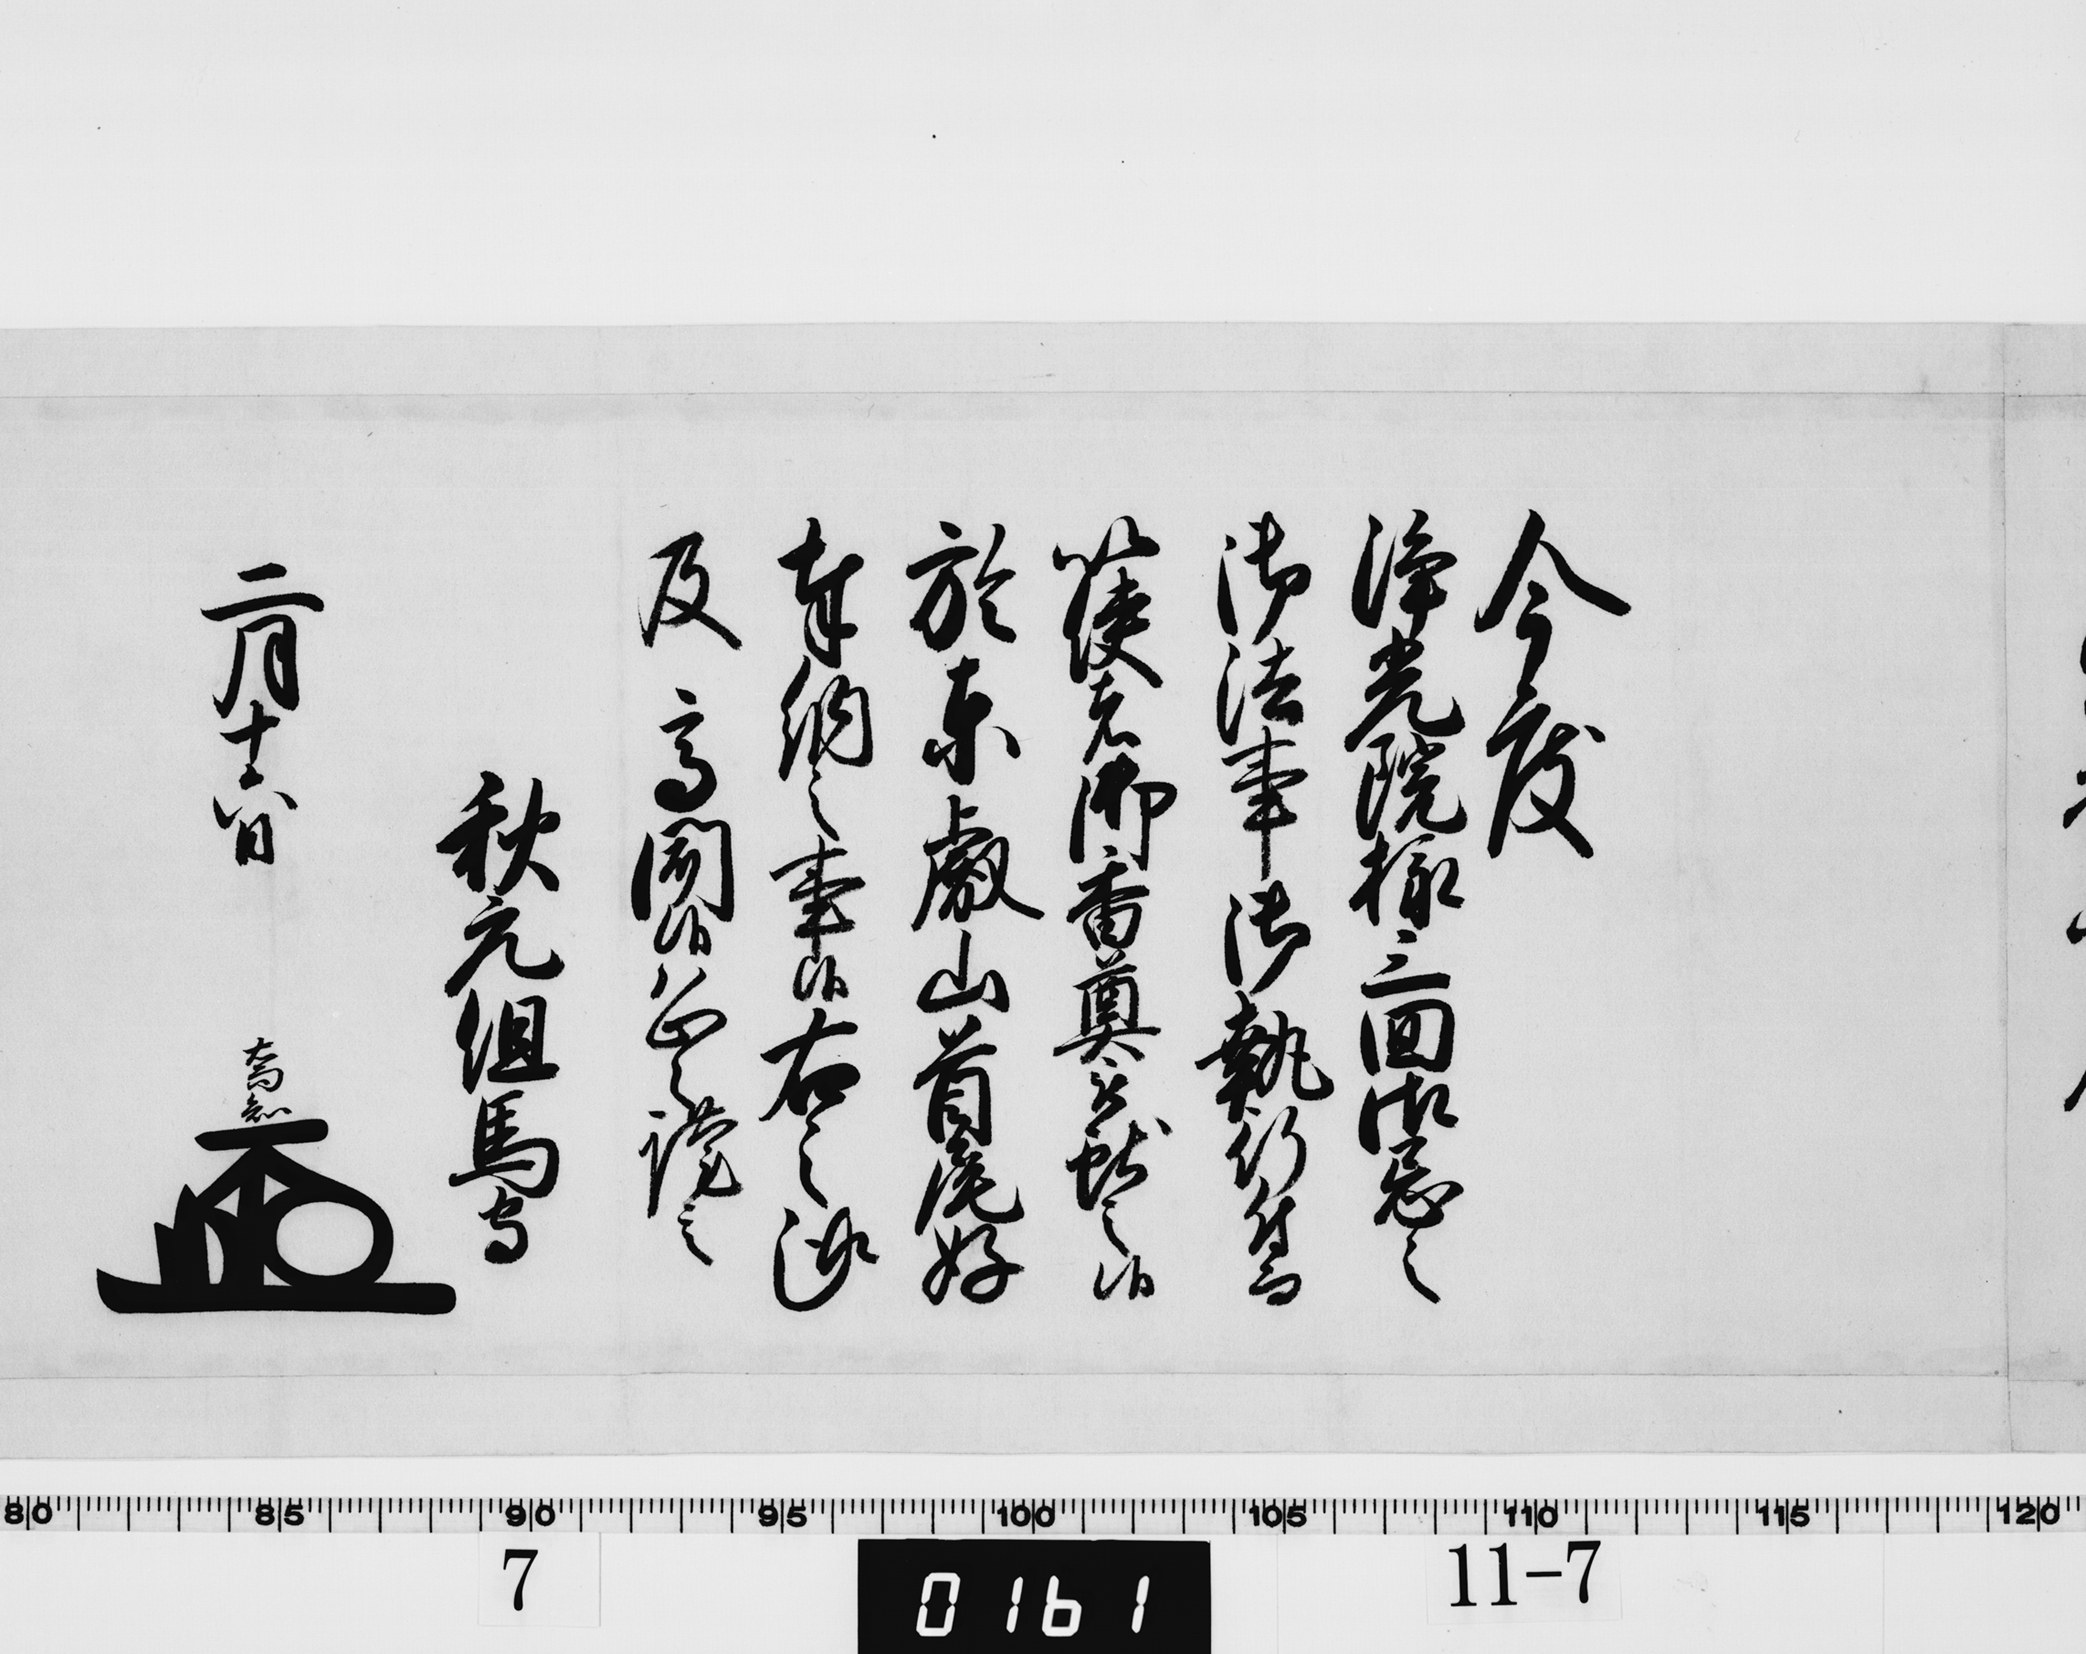 今度
浄光院様三回御忌之
御法事御執行付而
以使者御香奠被献之候
於東叡山首尾好
奉納之事候右之趣
及 高聞候恐々謹言
秋元但馬守
二月十六日
喬知
80 85 90 95 100 105 110 115 120
7
0161
11-7